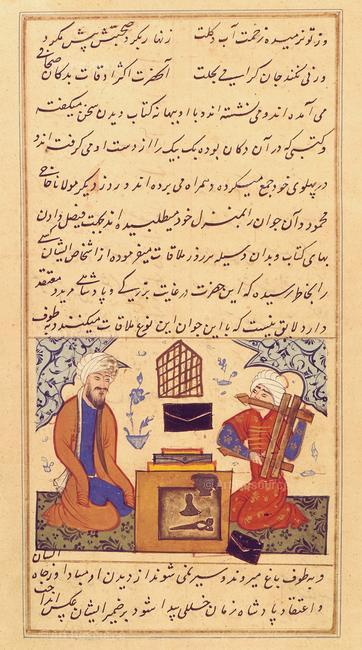 وز تو نرمیده زحمت آب و گلت زنهار بگرد صحبتش پیش مگرد
ورنی نکند جان کرامی بحلت آنحضرت اکثر اوقات بدکان صحافی
می آمده اند و می نشسته اند با او بهانه کتاب دیدن سخن میگفته
و کتبی که در آن دکان بوده یک بیک را از دست او می گرفته اند
در پهلوی خود جمع میکرده و همراه می برده اند و روز دیگر مولانا حاجی
محمود و آن جوان را بمنزل خود مطلبیده اند بجهت فیصل دادن
بهای کتاب و بدان وسیله هر روز ملاقات میفرموده از اشخاص ایشان کسی
را بخاطر رسیده که این حضرت در غایت بزرگی و پادشاهی مرید و معتقد
دارد لایق نیست که با این جوان این نوع ملاقات میکنند و به طوف
ایشان
و به طوف باغ میروند و سیر نمی شوند از دیدن او مبادا از جانب
و اعتقاد پادشاه زمان خللی پیدا شود بر ضمیر ایشان عکس انداخت